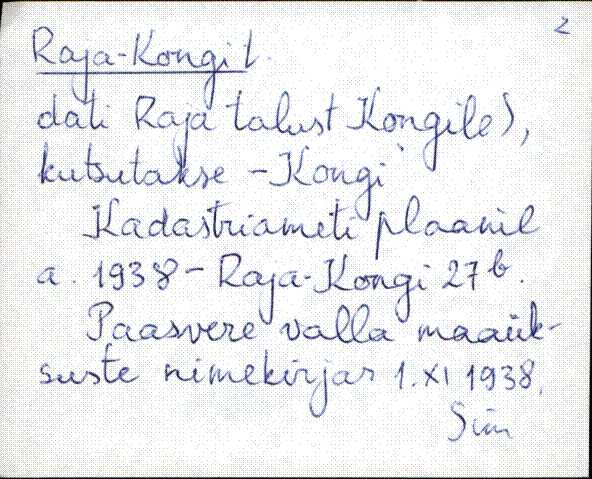 2
Raja-Kongi t.
dati Raja talust Kongile),
kutsutakse - Kongi
Kadastriameti plaanil
a. 1938 - Raja-Kongi 27 b.
Paasvere valla maaük-
suste nimekirjas 1. XI 1938.
Sim